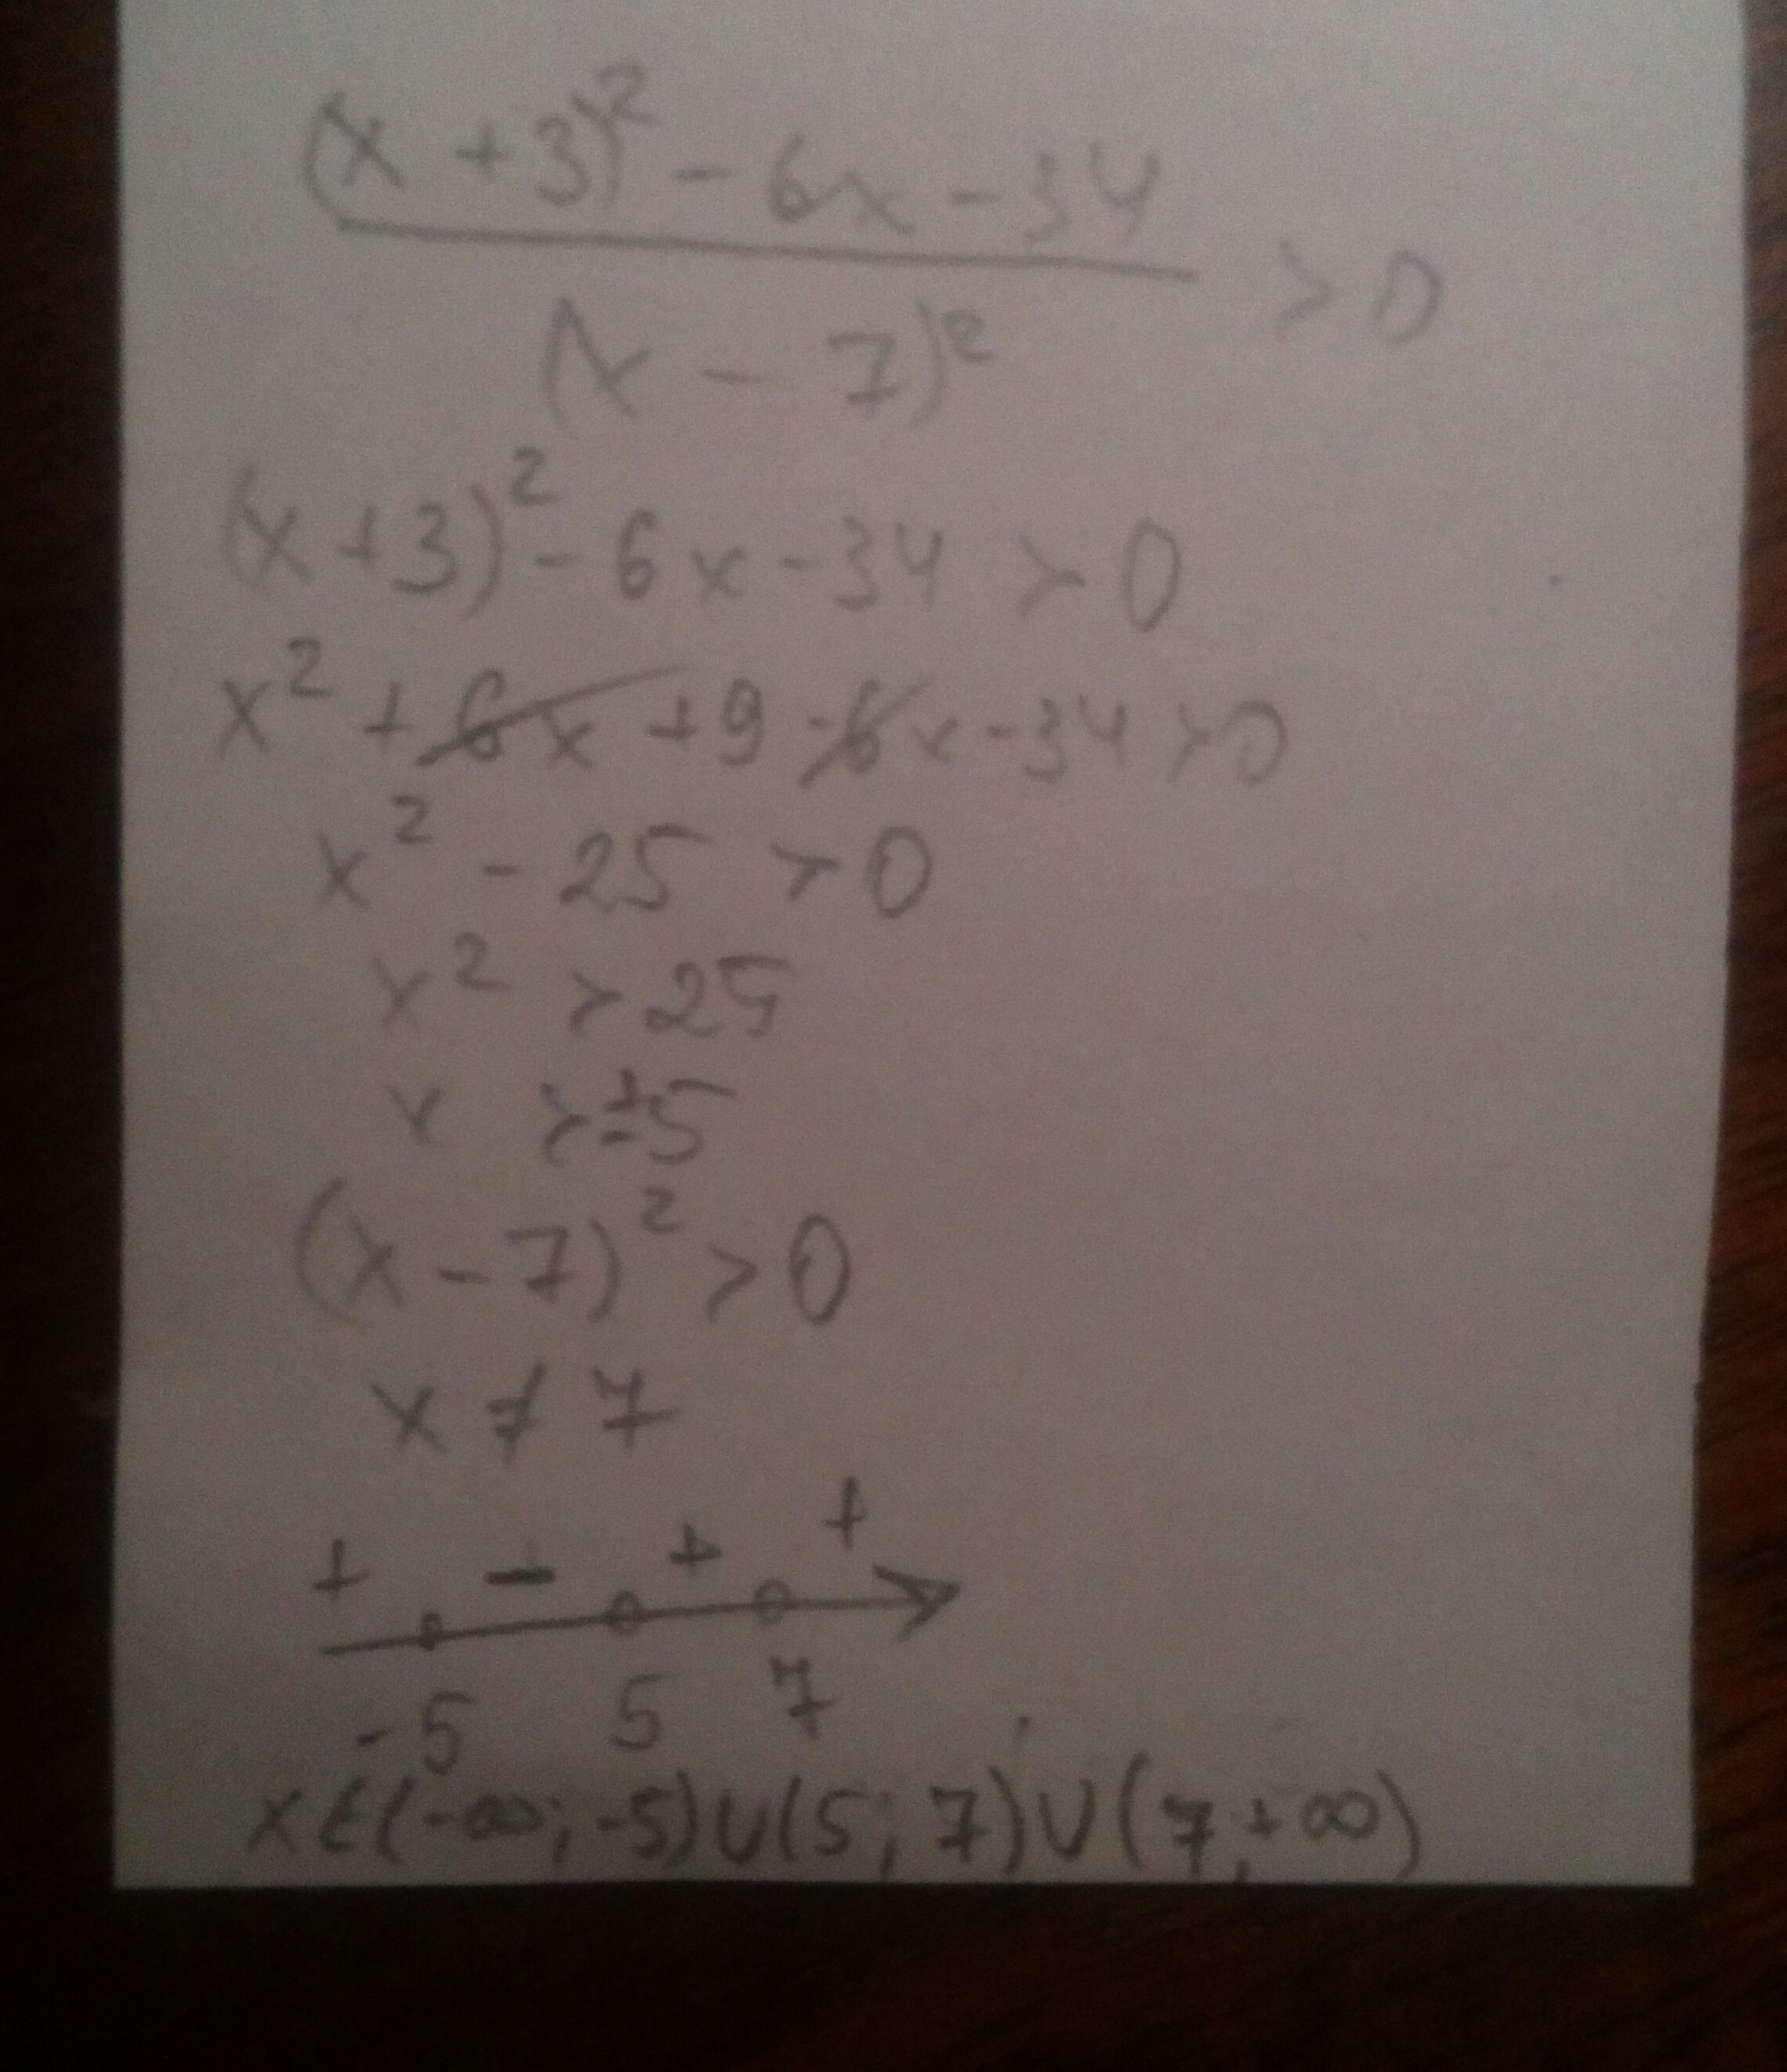 (x + 3)² - 6x - 34
> 0
(x - 7)²
(x + 3)² - 6x - 34 > 0
x² + 6x + 9 - 6x - 34 > 0
x² - 25 > 0
x² > 25
x > ±5
(x - 7)² > 0
x ≠ 7
+ - + +
-5 5 7
x ∈ (-∞; -5) ∪ (5; 7) ∪ (7; +∞)